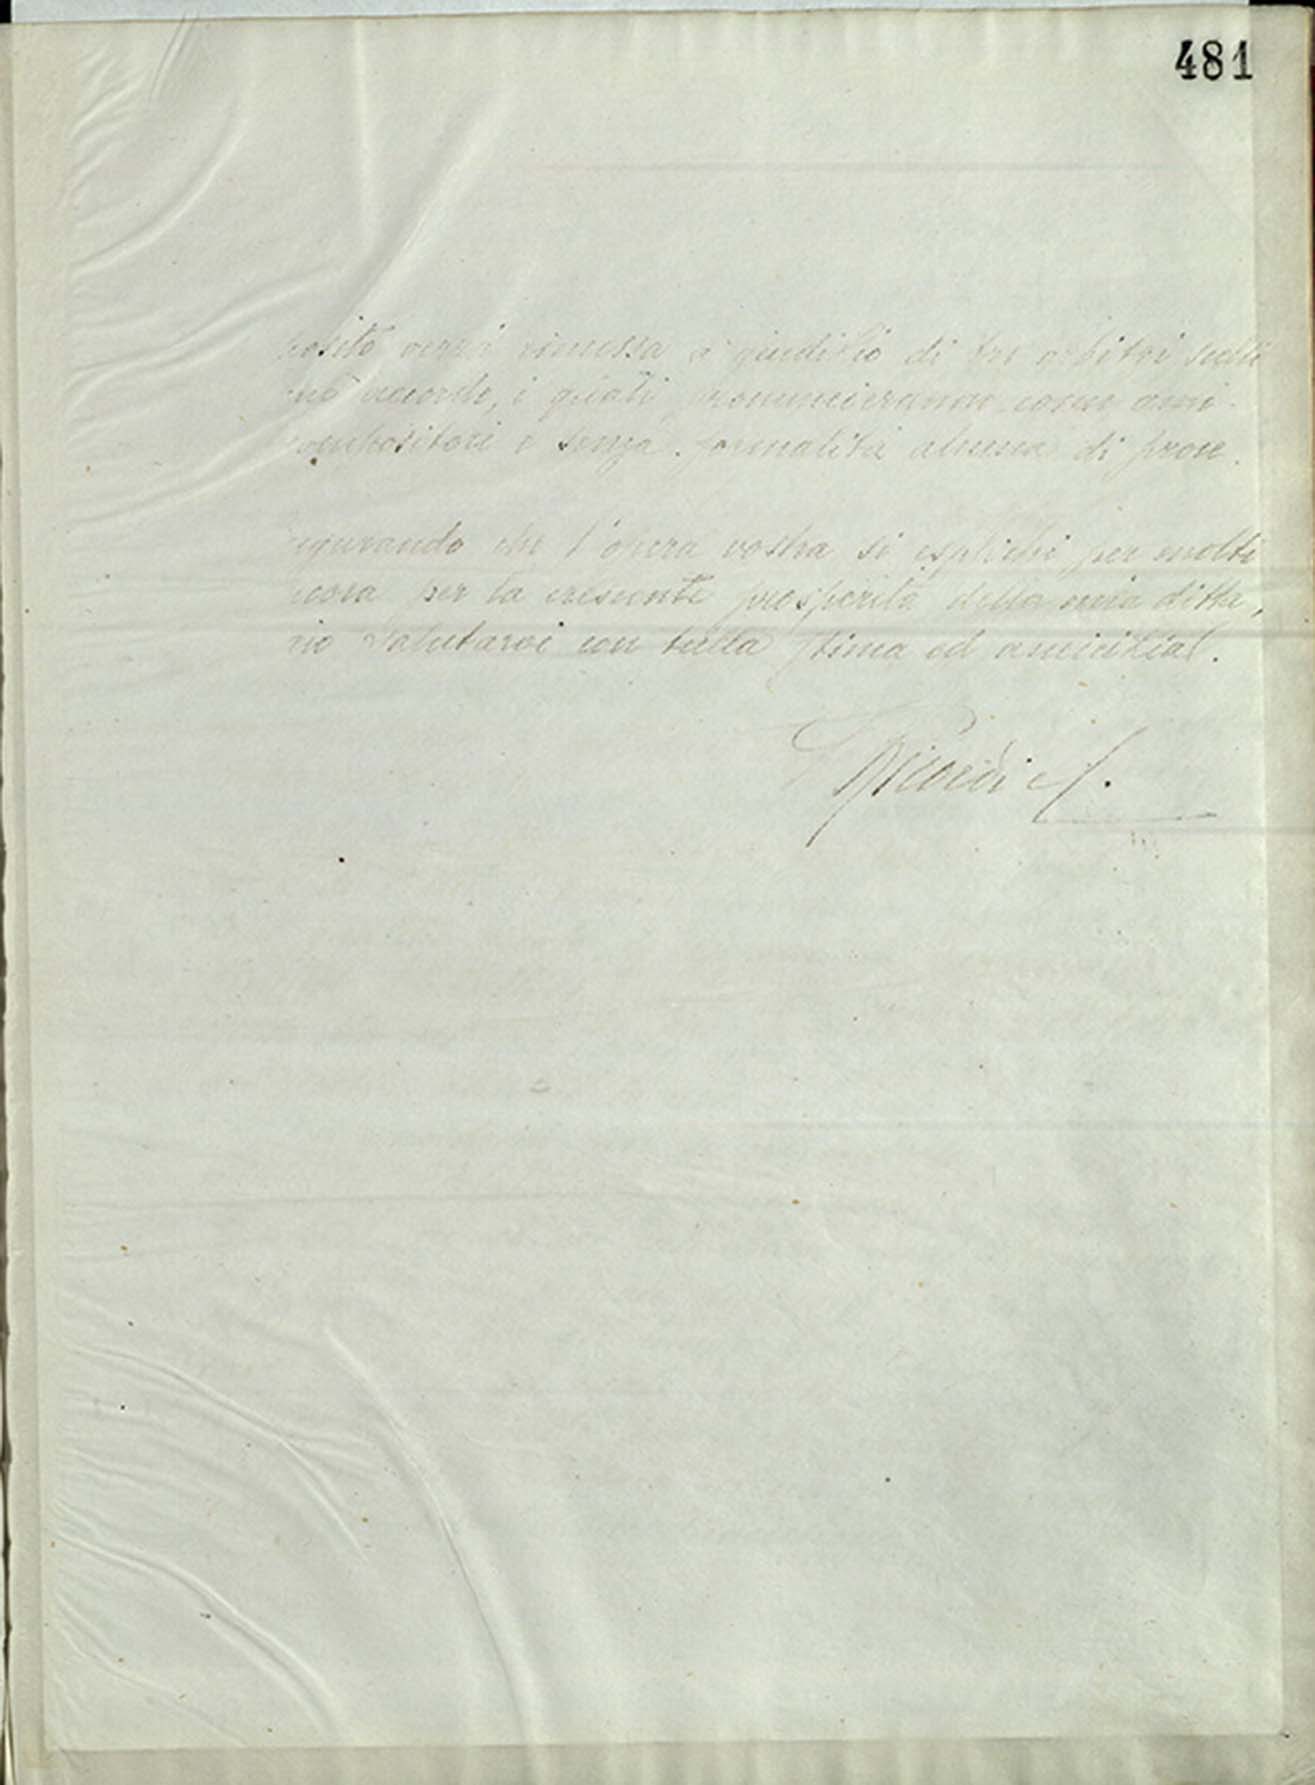 481
posito verrà rimessa a giudizio di tre arbitri scelti
accordo, i quali pronuncieranno come ami-
compositori e senza formalità alcuna di proce
augurando che l'opera vostra si esplichi per molti
ncora per la crescente prosperità della mia ditta,
cio salutarvi con tutta stima ed amicizia.
Ricordi